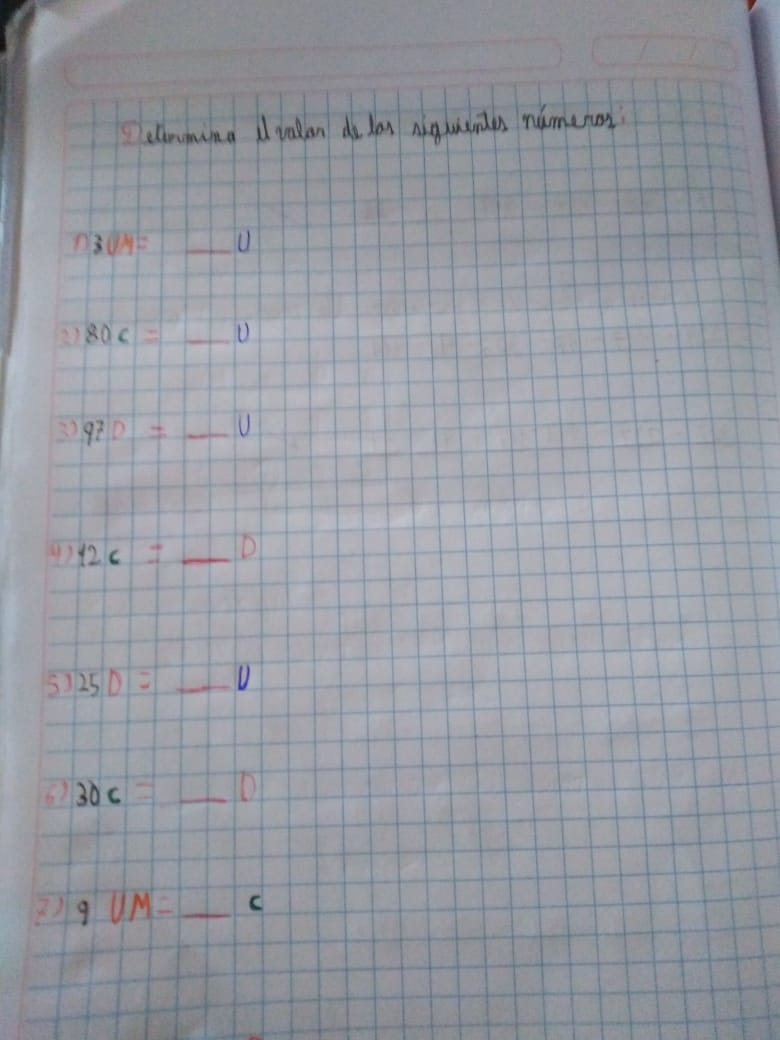 Determina el valor de los siguientes números:
1) 3 UM = ___ U
2) 80 C = ___ U
3) 97 D = ___ U
4) 12 C = ___ D
5) 25 D = ___ U
6) 30 C = ___ D
7) 9 UM = ___ C